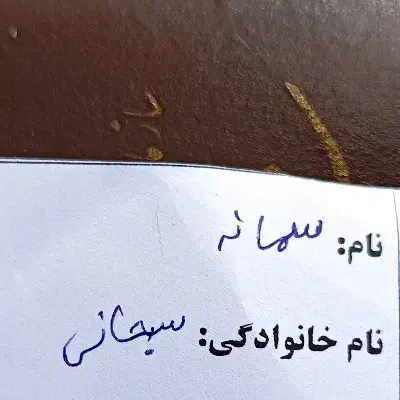 نام: سمانه
نام خانوادگی: سبحانی